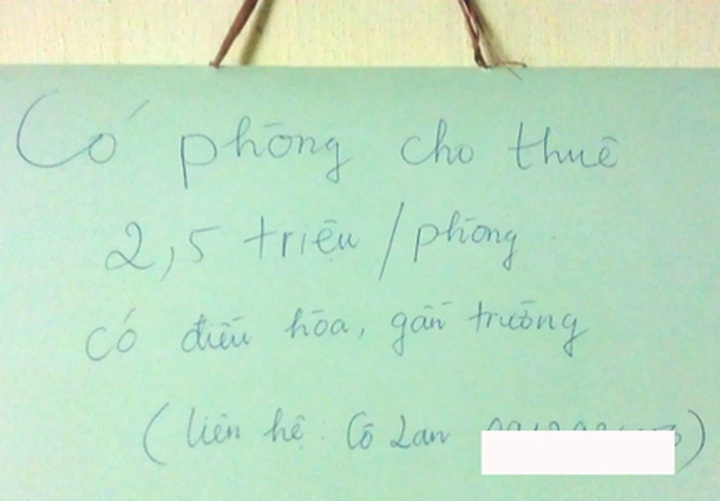 Có phòng cho thuê
2,5 triệu / phòng
có điều hòa, gần trường
(liên hệ: Cô Lan )